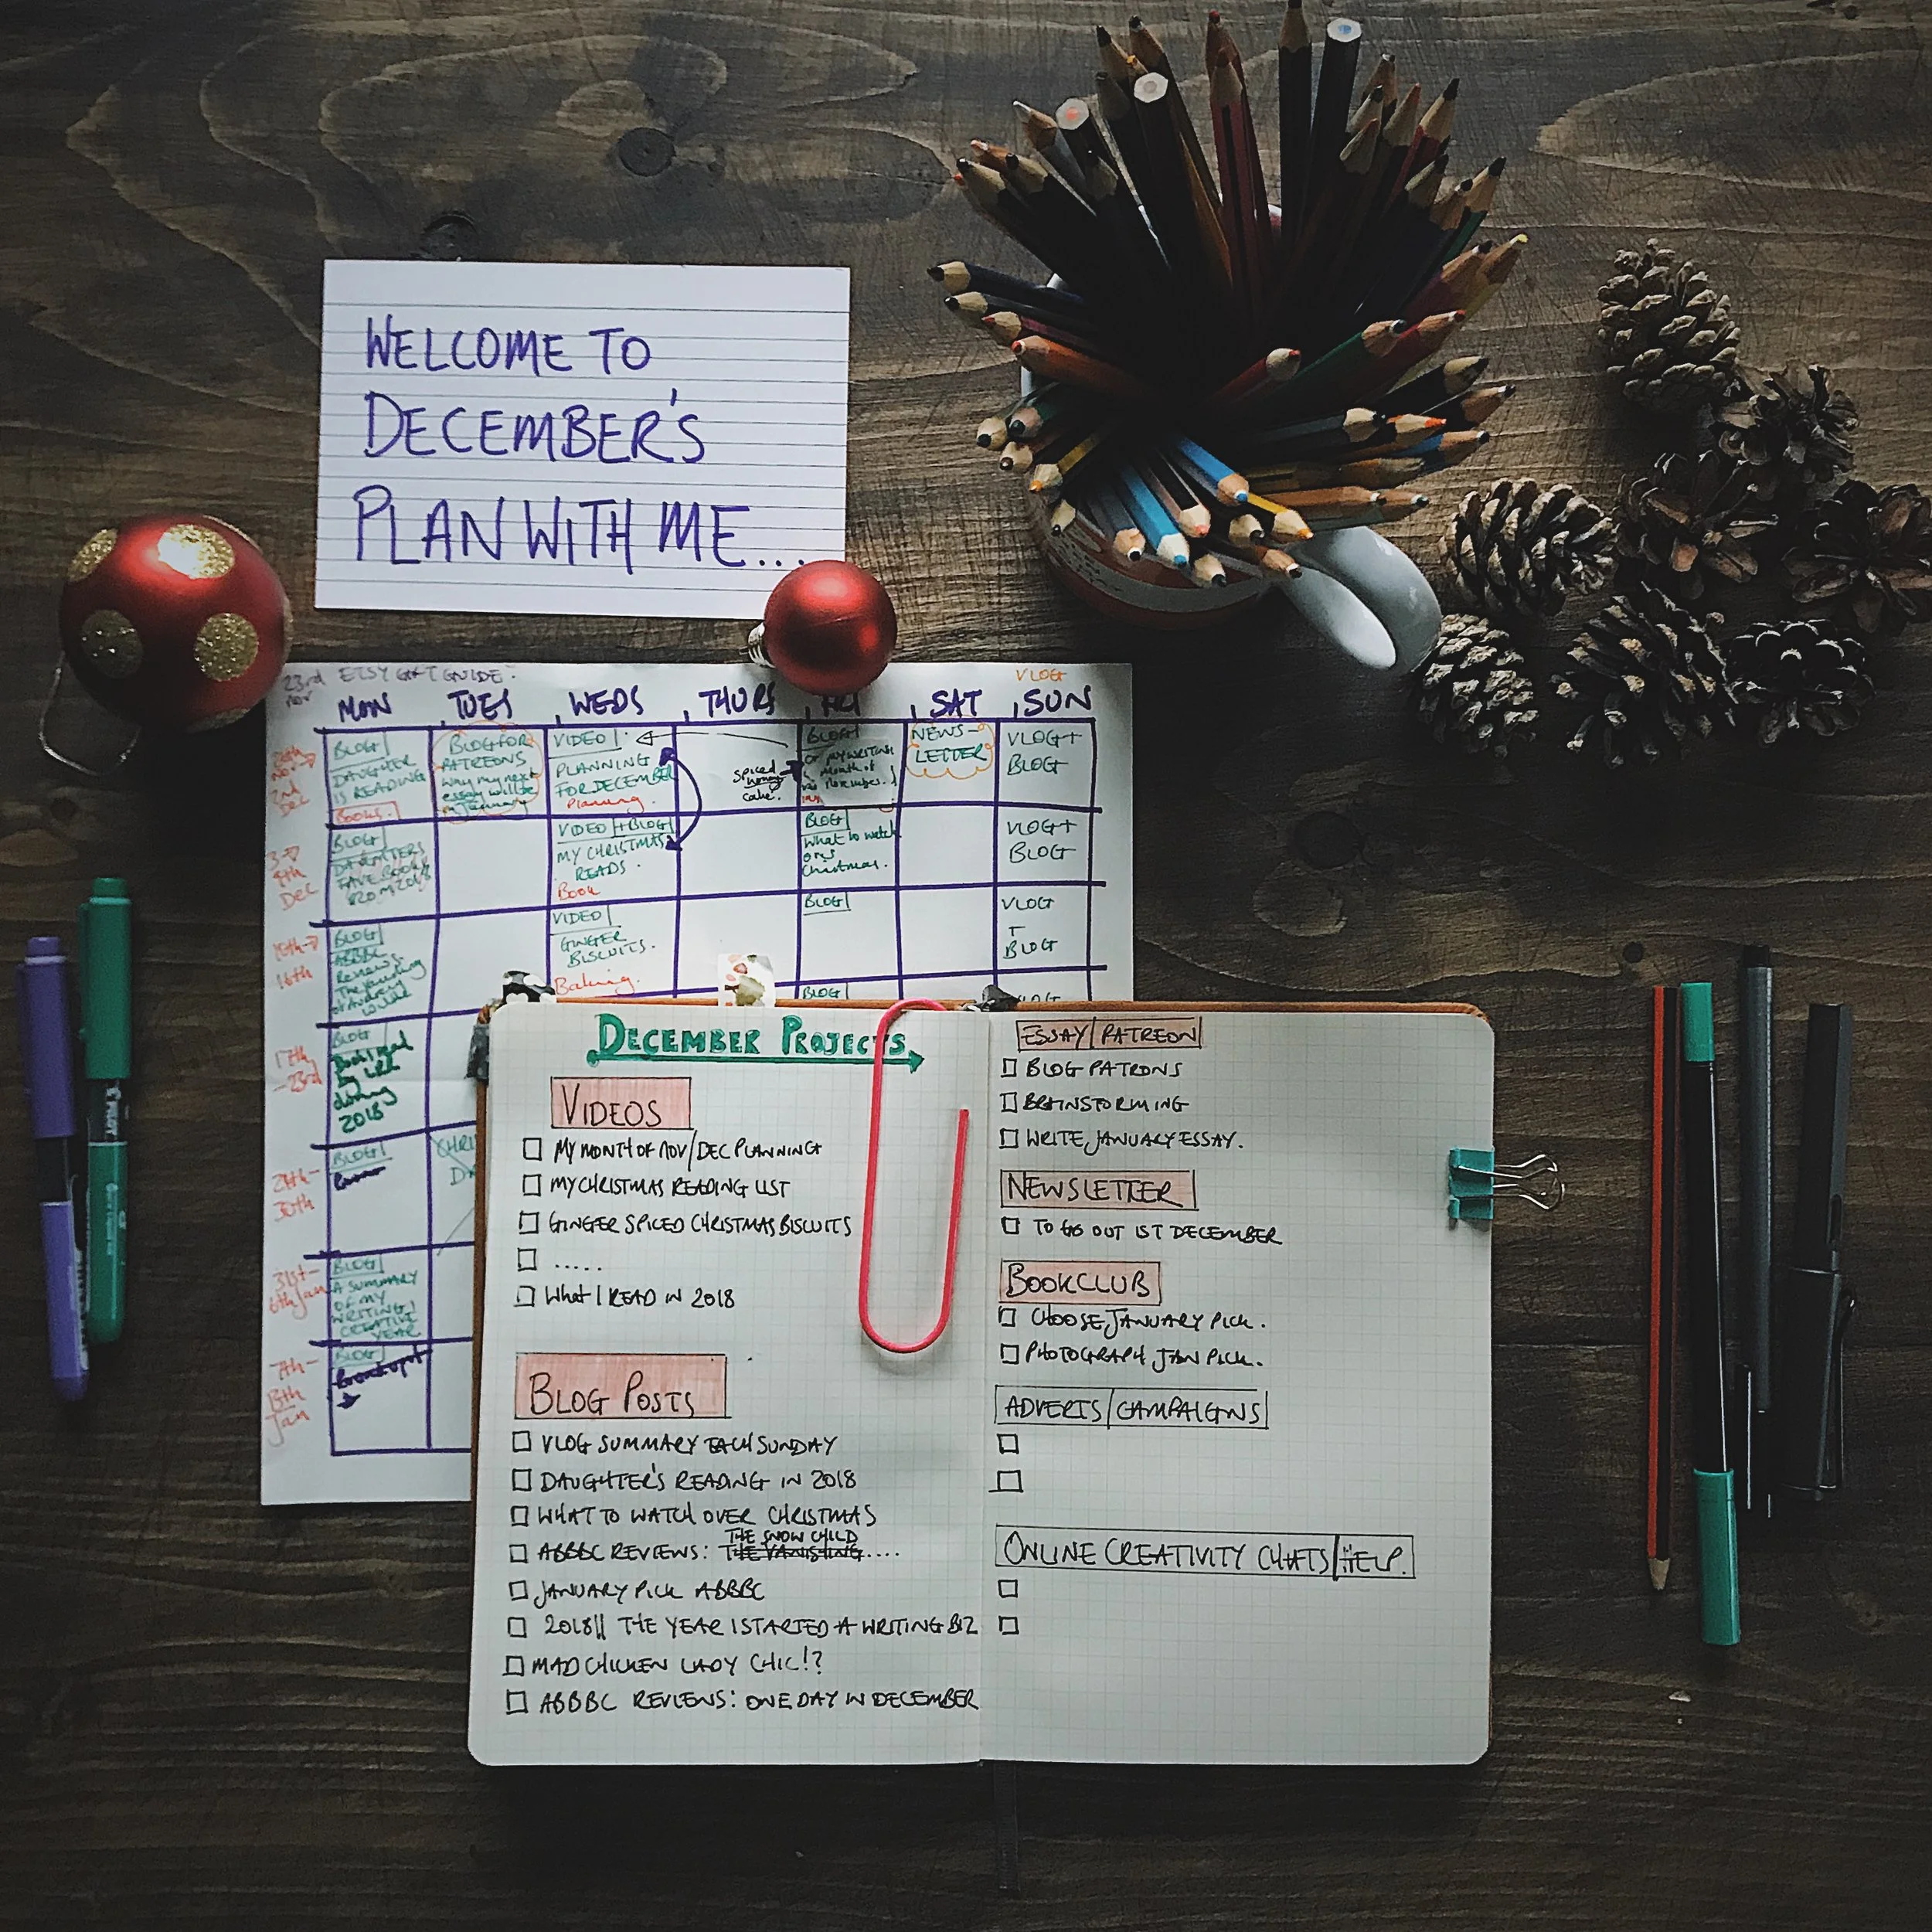 WELCOME TO
DECEMBER'S
PLAN WITH ME...
23rd ETSY GIFT GUIDE
Nov
VLOG
MON TUES WEDS THURS FRI SAT SUN
BLOG
DAUGHTER
IS READING
BOOKS.
BLOG FOR
PATREONS
why my next
essay will be
in January
VIDEO
PLANNING
FOR DECEMBER
Planning.
spiced
honey
cake.
BLOG
or my writing
month of
November.
NEWS-
LETTER
VLOG +
BLOG
3 →
9th
Dec
BLOG
DAUGHTERS
FAVE BOOKS
FROM 2018
VIDEO + BLOG
MY CHRISTMAS
READS.
Book
BLOG
What to watch
this
Christmas.
VLOG +
BLOG
10th →
16th
BLOG
ABBBC
Reviews.
VIDEO
GINGER
BISCUITS.
Baking.
BLOG
VLOG
+
BLOG
17th
-23rd
BLOG
Books read
by
during
2018
BLOG
VLOG
24th-
30th
BLOG
CHRI
DA
31st-
6th Jan
BLOG
A SUMMARY
OF MY
WRITING/
CREATIVE
YEAR
7th-
13th
Jan
BLOG
DECEMBER PROJECTS
VIDEOS
MY MONTH OF NOV/DEC PLANNING
MY CHRISTMAS READING LIST
GINGER SPICED CHRISTMAS BISCUITS
.....
WHAT I READ IN 2018
BLOG POSTS
VLOG SUMMARY EACH SUNDAY
DAUGHTER'S READING IN 2018
WHAT TO WATCH OVER CHRISTMAS
THE SNOW CHILD
ABBBC REVIEWS: THE VANISHING....
JANUARY PICK ABBBC
2018|| THE YEAR I STARTED A WRITING BIZ
MAD CHICKEN LADY CHIC!?
ABBBC REVIEWS: ONE DAY IN DECEMBER
ESSAY|PATREON
BLOG PATRONS
BRAINSTORMING
WRITE JANUARY ESSAY.
NEWSLETTER
TO GO OUT 1ST DECEMBER
BOOKCLUB
CHOOSE JANUARY PICK.
PHOTOGRAPH JAN PICK.
ADVERTS|CAMPAIGNS
ONLINE CREATIVITY CHATS|HELP.